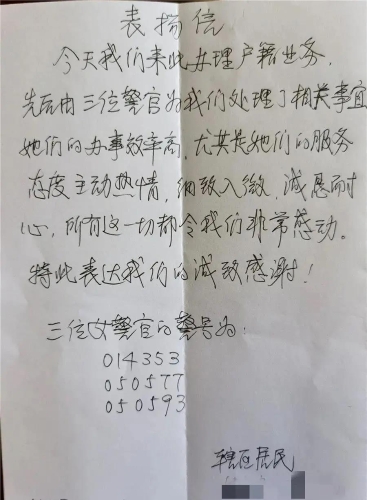 表扬信
今天我们来此办理户籍业务,
先后由三位警官为我们处理了相关事宜
她们的办事效率高,尤其是她们的服务
态度主动热情,细致入微,诚恳耐
心,所有这一切都令我们非常感动。
特此表达我们的诚致感谢!
三位女警官的警号为:
014353
050577
050593
辖区居民